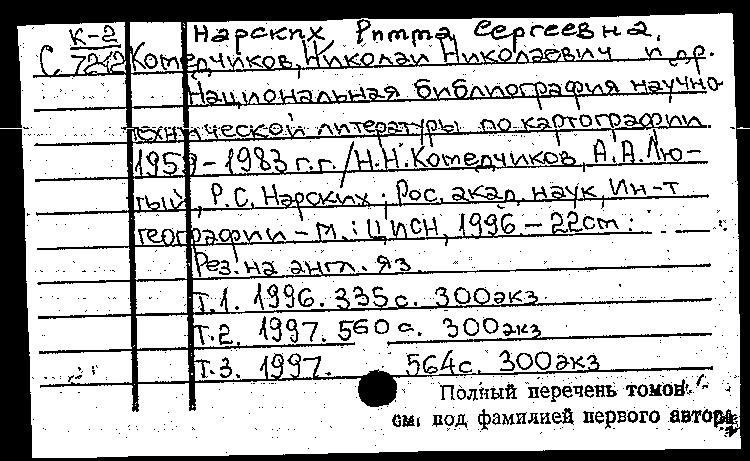 Нарских, Римма Сергеевна.
С К-2/7212 Котельчиков, Николай Николаевич и др.
Национальная библиография научно-
технической литературы по картографии
1959-1983 г.г. / Н.Н. Комедчиков, А.А. Лю-
тый, Р.С. Нарских; Рос. акад. наук, Ин-т
географии - М.: ЦИСН, 1996. - 22см.
Рез. на англ. яз.
Т.1. 1996. 335с. 300экз
Т.2. 1997. 560с. 300экз
Т.3. 1997. 564с. 300экз
Полный перечень томов
см. под фамилией первого автора